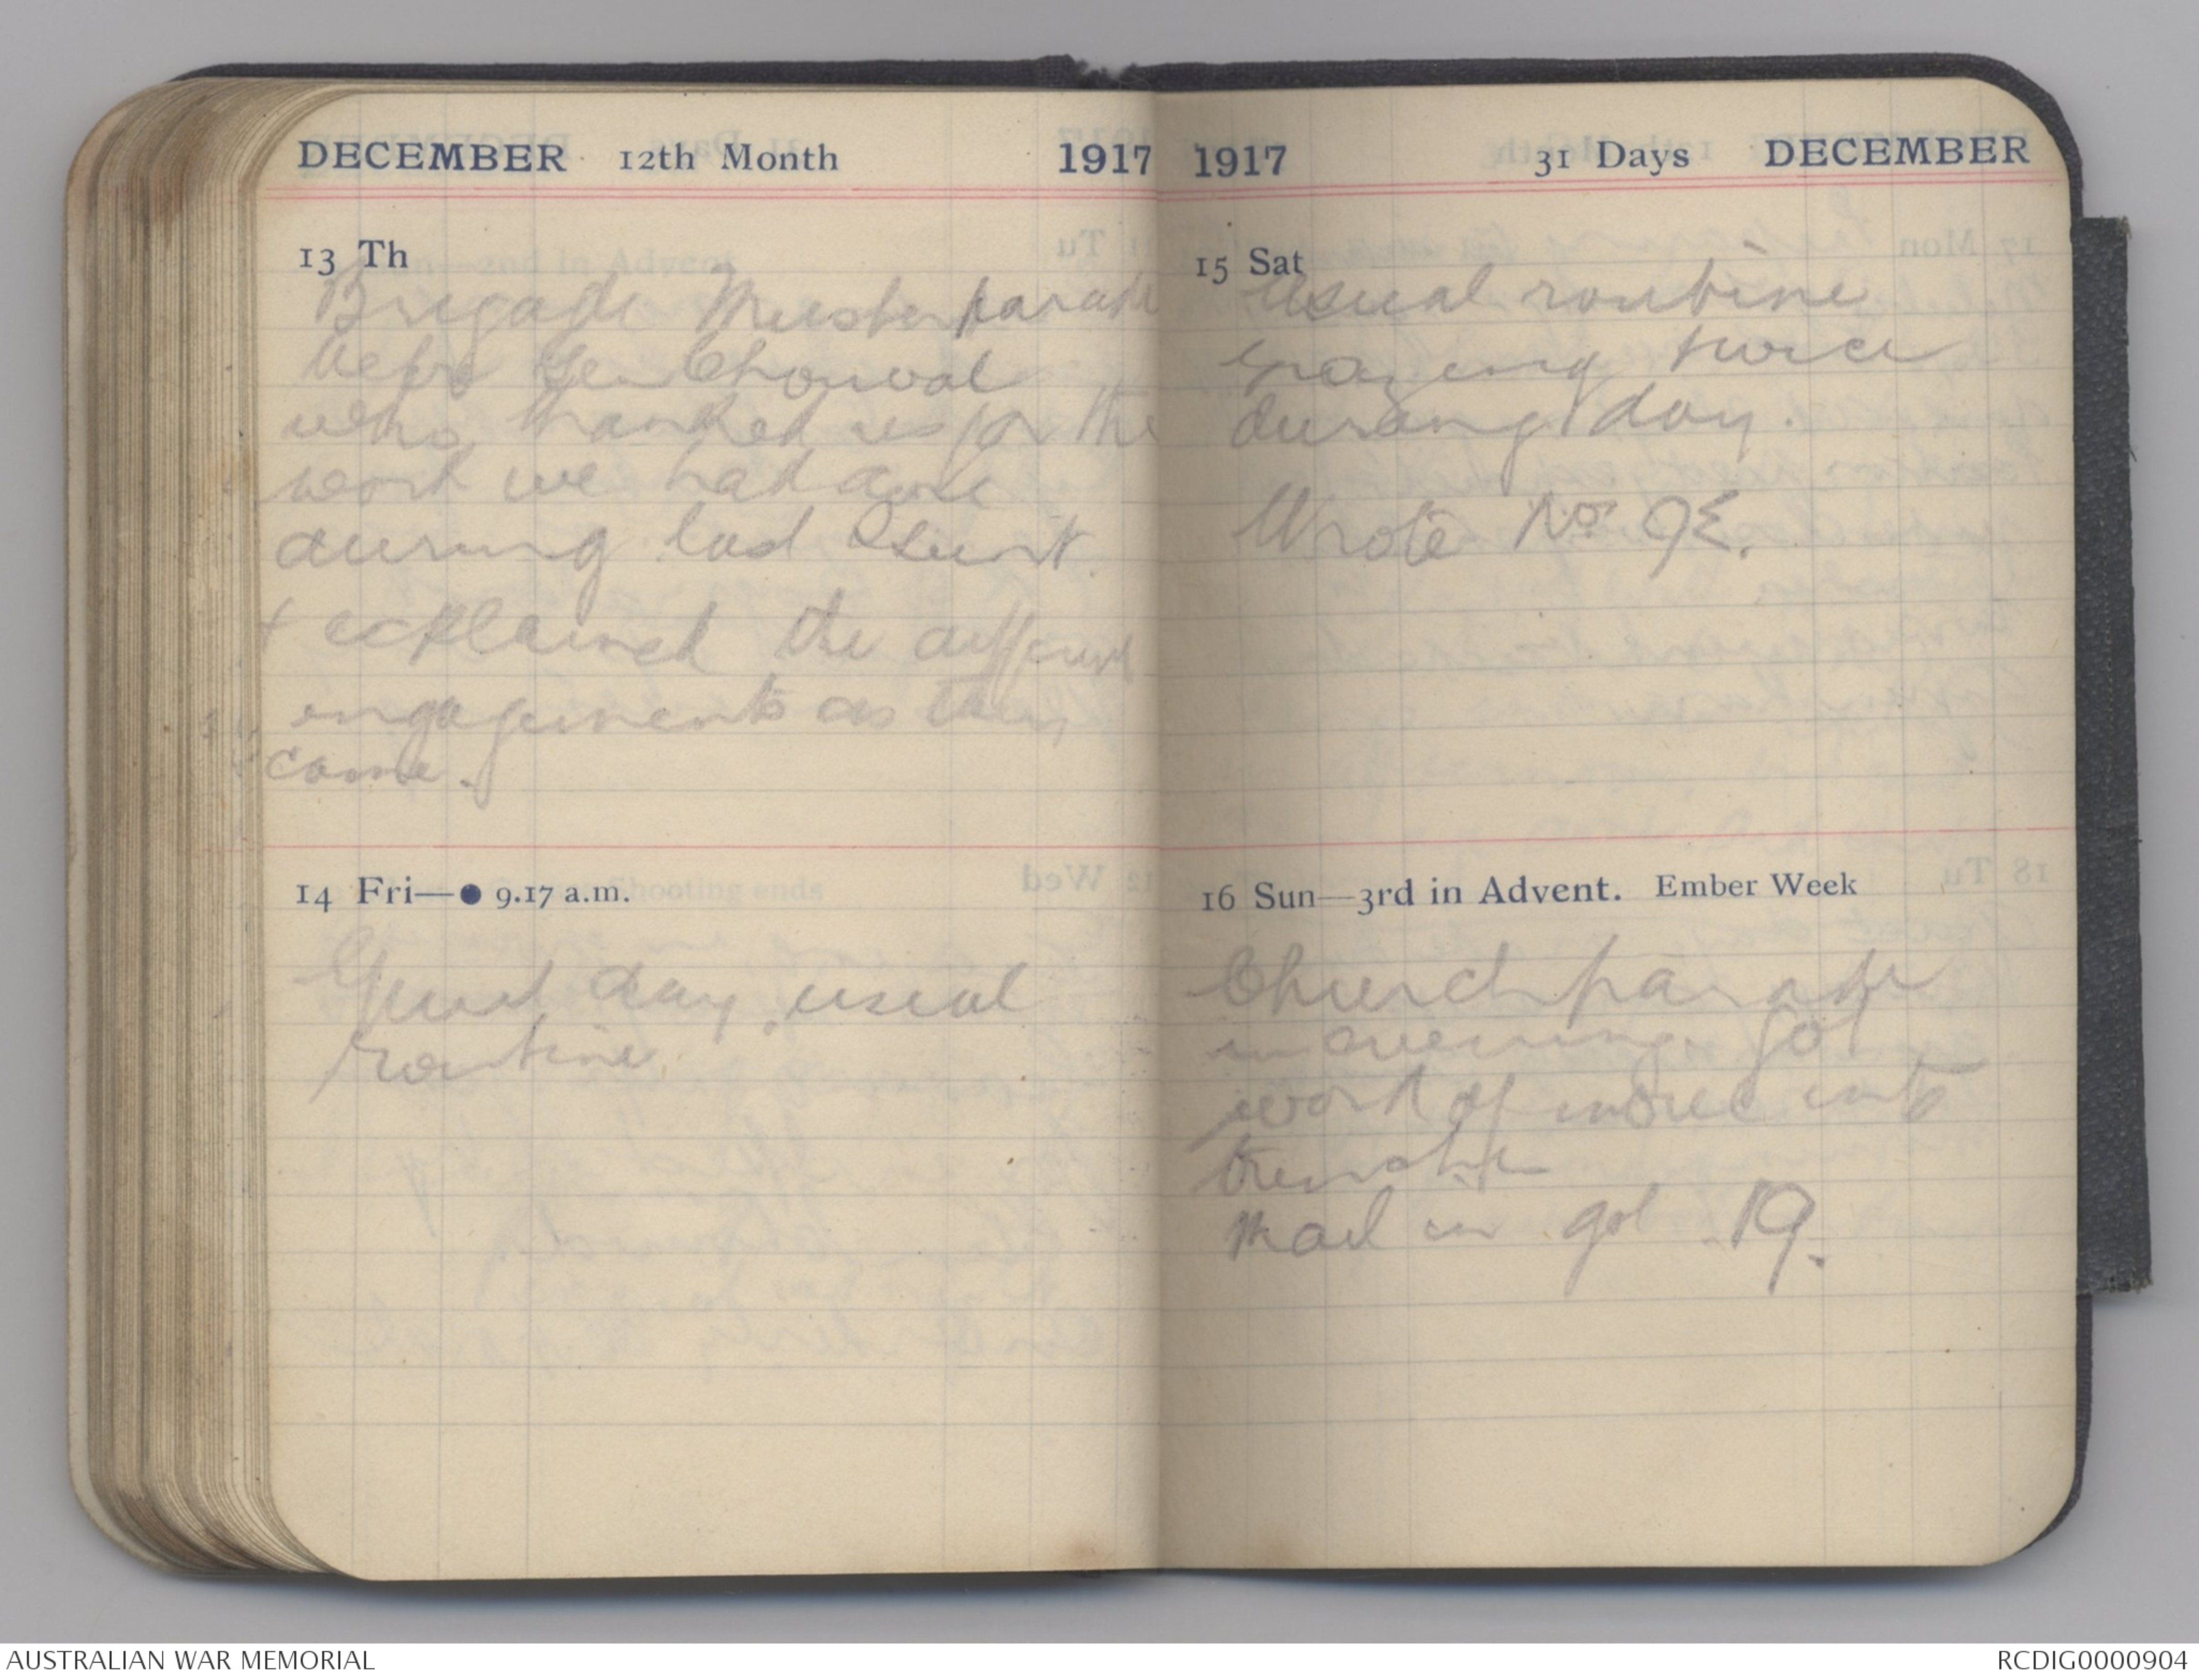 DECEMBER 12th Month 1917
13 Th
Brigade Muster parade
before Gen Chouval
who thanked us for the
work we had done
during last stunt
+ explained the different
engagements as they
came.
14 Fri—● 9.17 a.m.
Quiet day, usual
routine.
1917 31 Days DECEMBER
15 Sat
Usual routine
grazing twice
during day.
Wrote No 9E.
16 Sun—3rd in Advent. Ember Week
Church parade
in evening. Got
word of move into
trenches
Mail in got 19.
AUSTRALIAN WAR MEMORIAL
RCDIG0000904